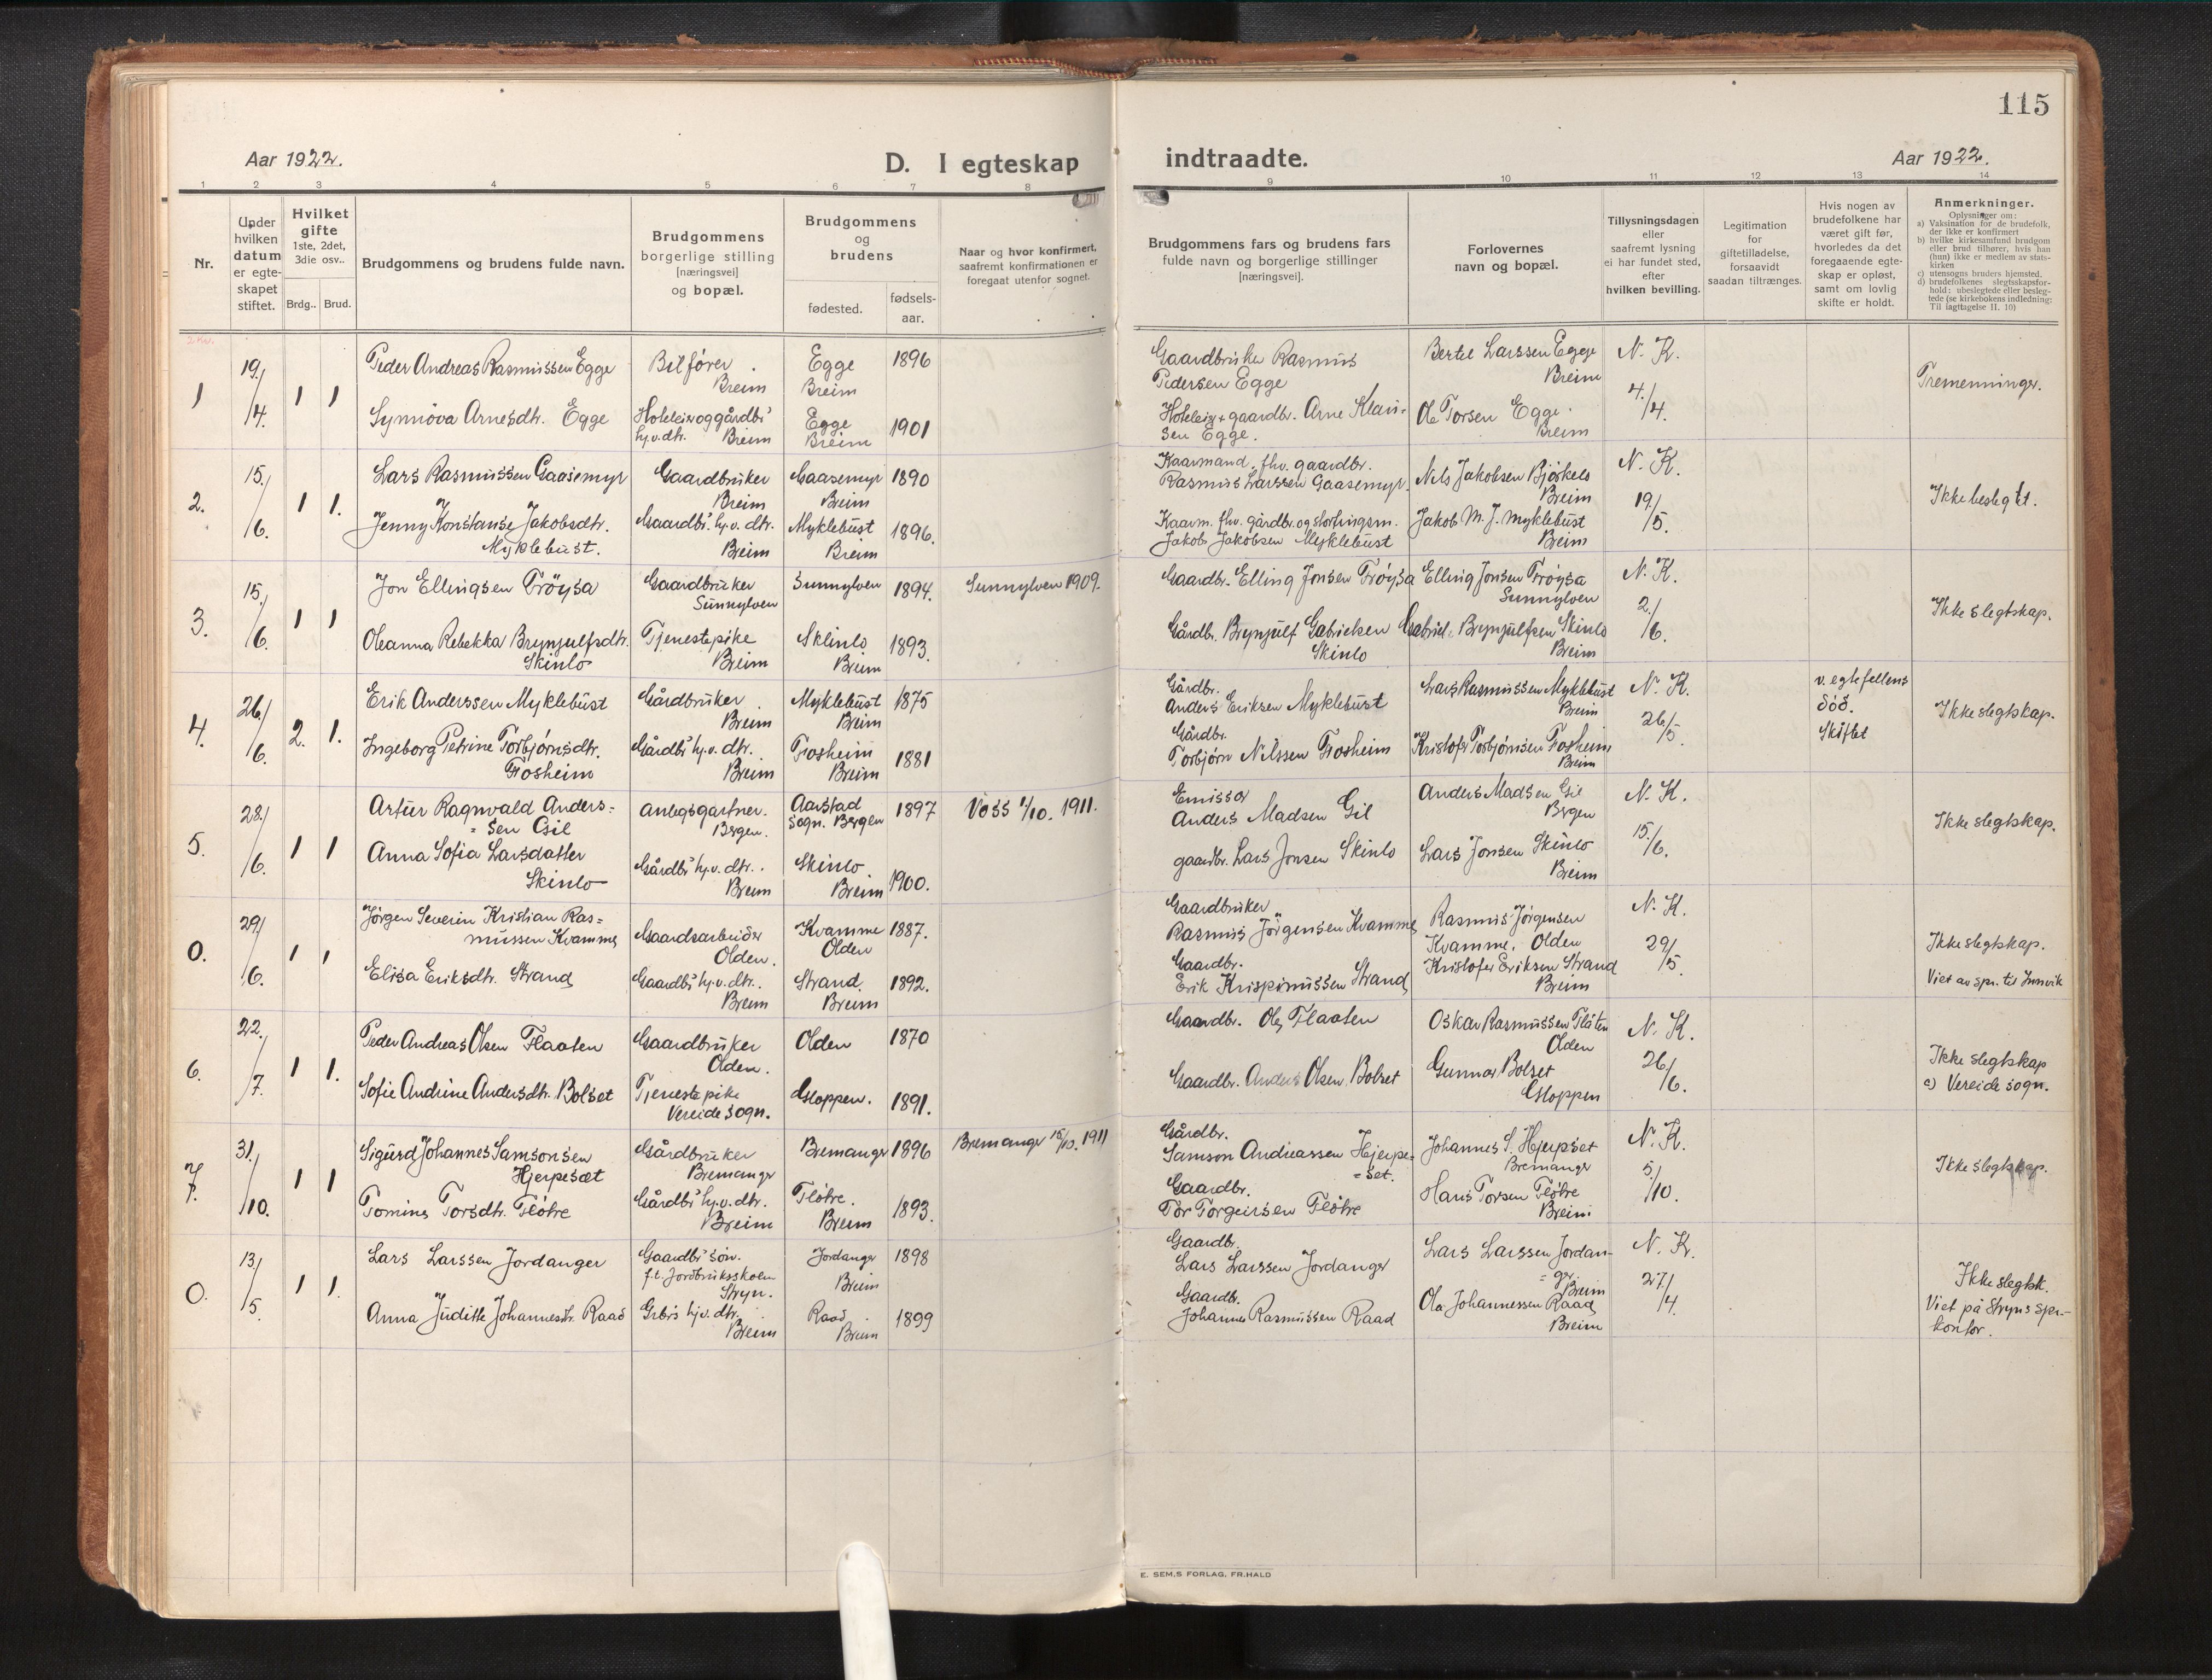 115
Aar 1922.
D. I egteskap indtraadte.
Aar 1922.
1 2 3 4 5 6 7 8 9 10 11 12 13 14
Nr.
Under
hvilken
datum
er egte-
skapet
stiftet.
Hvilket
gifte
1ste, 2det,
3die osv..
Brdg.. Brud.
Brudgommens og brudens fulde navn.
Brudgommens
borgerlige stilling
[næringsvei]
og bopæl.
Brudgommens
og
brudens
fødested.
fødsels-
aar.
Naar og hvor konfirmert,
saafremt konfirmationen er
foregaat utenfor sognet.
Brudgommens fars og brudens fars
fulde navn og borgerlige stillinger
[næringsvei].
Forlovernes
navn og bopæl.
Tillysningsdagen
eller
saafremt lysning
ei har fundet sted,
efter
hvilken bevilling.
Legitimation
for
giftetilladelse,
forsaavidt
saadan tiltrænges.
Hvis nogen av
brudefolkene har
været gift før,
hvorledes da det
foregaaende egte-
skap er opløst,
samt om lovlig
skifte er holdt.
Anmerkninger.
Oplysninger om:
a) Vaksination for de brudefolk,
der ikke er konfirmert
b) hvilke kirkesamfund brudgom
eller brud tilhører, hvis han
(hun) ikke er medlem av stats-
kirken
c) utensogns bruders hjemsted.
d) brudefolkenes slegtsskapsfor-
hold: ubeslegtede eller besleg-
tede (se kirkebokens indledning:
Til iagttagelse II. 10)
1
19/4.
1 1
Peder Andreas Rasmussen Egge
Bilfører
Breim
Egge
Breim
1896
Gaardbruker Rasmus
Pedersen Egge
Bertel Larssen Egge
Breim
N. K.
4/4.
Tremenninger.
Synnöva Arnesdtr. Egge
Hoteleier og gårdbr's
hj.v. dtr. Breim
Egge
Breim
1901
Hoteleig. + gaardbr. Arne Klau-
sen Egge.
Ole Torsen Egge.
Breim
2.
15/6.
1 1.
Lars Rasmussen Gaasemyr
Gaardbruker
Breim
Gaasemyr
Breim
1890
Kaarmand, fhv. gaardbr.
Rasmus Larssen Gaasemyr.
Nils Jakobsen Bjørkelo
Breim
N. K.
19/5.
Ikke beslegtet.
Jenny Konstanse Jakobsdtr.
Myklebust.
Gaardbr.' hj.v. dtr.
Breim
Myklebust
Breim
1896.
Kaarm. fhv. gårdbr. og stortingsm.
Jakob Jakobsen Myklebust
Jakob M. J. Myklebust
Breim
3.
15/6.
1 1
Jon Ellingsen Tröysa
Gaardbruker
Sunnylven
Sunnylven
1894.
Sunnylven 1909.
Gaardbr. Elling Jonsen Frøysa
Elling Jonsen Frøysa
Sunnylven
N. K.
2/6.
Ikke slegtskap.
Oleanna Rebekka Brynjulfsdtr.
Skinlo
Tjenestepike
Breim
Skinlo
Breim
1893.
Gårdb. Brynjulf Gabrielsen
Skinlo
Gabriel Brynjulfsen Skinlo
Breim
4.
26/6.
2. 1.
Erik Anderssen Myklebust
Gårdbruker
Breim
Myklebust
Breim
1875
Gårdbr.
Anders Eriksen Myklebust
Lars Rasmussen Myklebust
Breim
N. K.
26/5.
v. egtefellens
död.
Skiftet
Ikke slegtskap.
Ingeborg Petrine Torbjørnsdtr.
Fosheim
Gårdbr' hj.v. dtr.
Breim
Fosheim
Breim
1881
Gårdbr.
Torbjørn Nilssen Fosheim
Kristofer Torbjørnsen Fosheim
Breim
5.
28/6.
1 1
Artur Ragnvald Anders=
=sen Gil
Anlegsgartner.
Bergen.
Aarstad
sogn. Bergen
1897
Voss 1/10. 1911.
Emissær
Anders Madsen Gil
Anders Madsen Gil
Bergen
N. K.
15/6.
Ikke slegtskap.
Anna Sofia Larsdatter
Skinlo
Gårdbr' hj.v. dtr.
Breim
Skinlo
Breim
1900.
gaardbr. Lars Jonsen Skinlo
Lars Jonsen Skinlo
Breim
0.
29/6.
1 1
Jørgen Severin Kristian Ras=
mussen Kvamme
Gaardsarbeider
Olden.
Kvamme
Olden
1887.
Gaardbruker
Rasmus Jörgensen Kvamme
Rasmus Jörgensen
Kvamme, Olden
N. K.
29/5.
Ikke slegtskap.
Viet av spr. til Innvik
Elisa Eriksdtr. Strand
Gaardbr' hj.v. dtr.
Breim
Strand.
Breim
1892.
Gaardbr.
Erik Krispinussen Strand
Kristofer Eriksen Strand
Breim
6.
22/7.
1 1.
Peder Andreas Olsen Flaaten
Gaardbruker
Olden.
Olden
1870
Gaardbr. Ole Flaaten
Oskar Rasmussen Flåten
Olden
N. K.
26/6.
Ikke slegtskap
c) Vereide sogn.
Sofie Andrine Andersdtr. Bolset
Tjenestepike
Vereide sogn.
Gloppen.
1891.
Gaardbr. Anders Olsen Bolset
Gunnar Bolset
Gloppen
7.
31/10.
1 1
Sigurd Johannes Samsonsen
Hjerpesæt
Gårdbruker
Bremanger
Bremanger
1896
Bremanger 15/10. 1911
Gårdbr.
Samson Andreassen Hjerpe=
=set.
Johannes S. Hjerpset
Bremanger
N. K.
5/10.
Ikke slegtskap.
Tomine Torsdtr. Flötre
Gårdbr' hj.v. dtr.
Breim
Flötre.
Breim
1893.
Gaardbr.
Tor Torgeirsen Flötre
Hans Torsen Flötre
Breim
0.
13/5.
1 1.
Lars Larssen Jordanger
Gaardbr' søn.
f.t. Jordbruksskolen
Stryn.
Jordanger
Breim
1898
Gaardbr.
Lars Larssen Jordanger
Lars Larssen Jordan-
=ger
Breim
N. K.
27/4.
Ikke slegtsk.
Viet på Stryns spr.-
kontor.
Anna Judith Johannesdtr. Raad
Grbr's hj.v. dtr.
Breim
Raad
Breim
1899
Gaardbr.
Johannes Rasmussen Raad
Ola Johannessen Raad
Breim
E. SEM,S FORLAG, FR.HALD